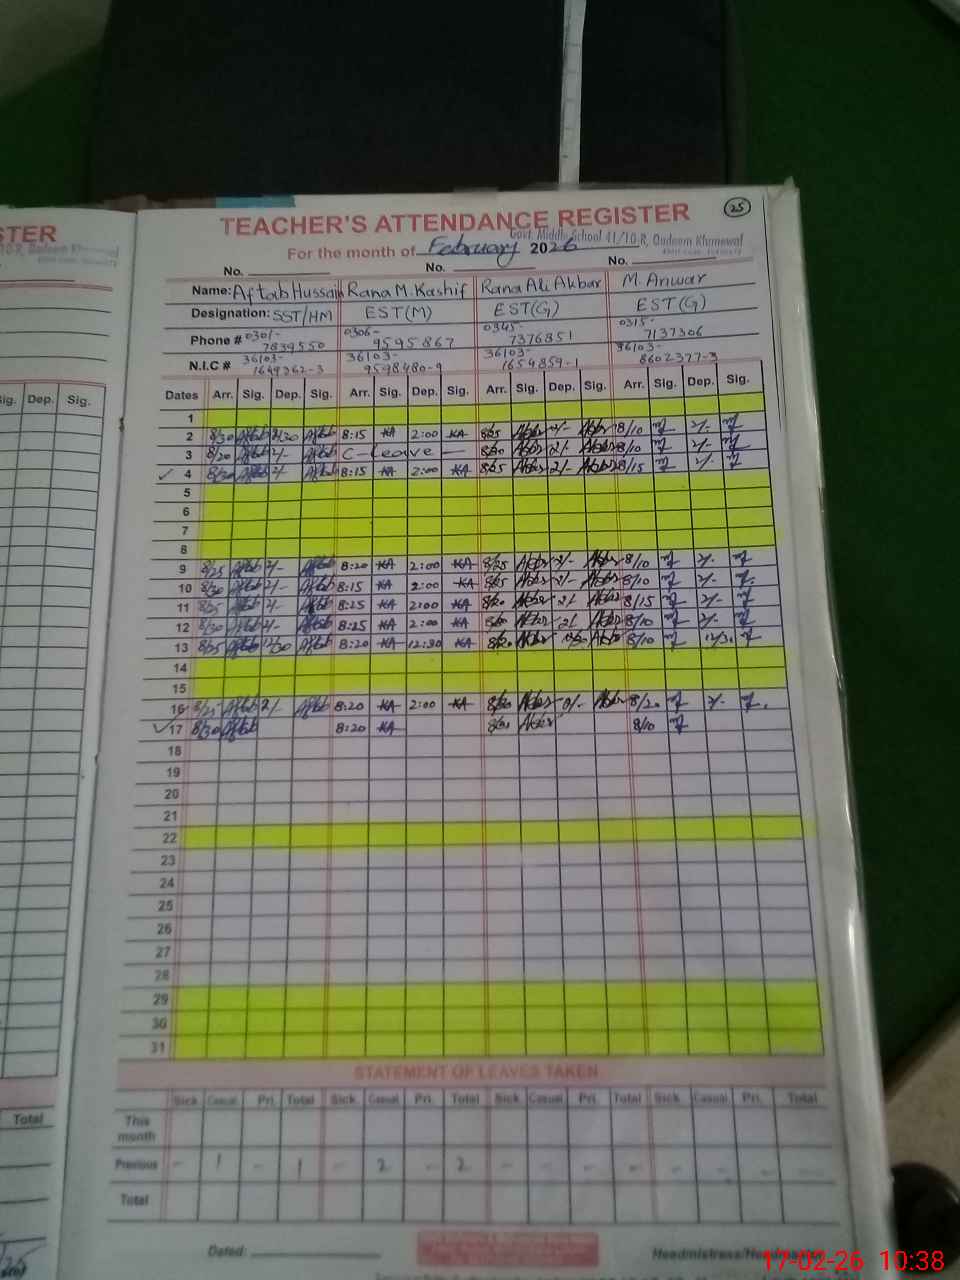 STER
TEACHER'S ATTENDANCE REGISTER 25
Govt. Middle School 41/10-R, Qadeem Khanewal
For the month of February 2026
No. No. No.
Name: Aftab Hussain Rana M. Kashif Rana Ali Akbar M. Anwar
Designation: SST/HM EST(M) EST(G) EST(G)
Phone # 0301- 0306- 0345- 0315-
7839550 9595867 7376851 7137306
N.I.C # 36103- 36103- 36103- 36103-
1649362-3 9598480-9 1654859-1 8602377-3
Sig. Dep. Sig.
Dates Arr. Sig. Dep. Sig. Arr. Sig. Dep. Sig. Arr. Sig. Dep. Sig. Arr. Sig. Dep. Sig.
1
2 8/30 Aftab 2/30 Aftab 8:15 KA 2:00 KA 8/25 Akbar 2/- Akbar 8/10 2/-
3 8/20 Aftab 2/- Aftab C-leave - 8/20 Akbar 2/- Akbar 8/10 2/-
4 8/30 Aftab 2/- Aftab 8:15 KA 2:00 KA 8/25 Akbar 2/- Akbar 8/15 2/-
5
6
7
8
9 8/25 Aftab 2/- Aftab 8:20 KA 2:00 KA 8/25 Akbar 2/- Akbar 8/10 2/-
10 8/30 Aftab 2/- Aftab 8:15 KA 2:00 KA 8/25 Akbar 2/- Akbar 8/10 2/-
11 8/25 Aftab 2/- Aftab 8:25 KA 2:00 KA 8/20 Akbar 2/- Akbar 8/15 2/-
12 8/30 Aftab 2/- Aftab 8:25 KA 2:00 KA 8/20 Akbar 2/- Akbar 8/10 2/-
13 8/25 Aftab 12/30 Aftab 8:20 KA 12:30 KA 8/20 Akbar 12/30 Akbar 8/10 12/30
14
15
16 8/25 Aftab 2/- Aftab 8:20 KA 2:00 KA 8/20 Akbar Akbar 8/20 2/-
17 8/30 Aftab 8:20 KA 8/20 Akbar 8/10
18
19
20
21
22
23
24
25
26
27
28
29
30
31
STATEMENT OF LEAVES TAKEN
Sick Casual Pri. Total Sick Casual Pri. Total Sick Casual Pri. Total Sick Casual Pri. Total
Total
This month
Previous - 1 - 1 - 2 - 2 - - - - - - - -
Total
Dated: Headmistress/Headmaster
17-02-26 10:38